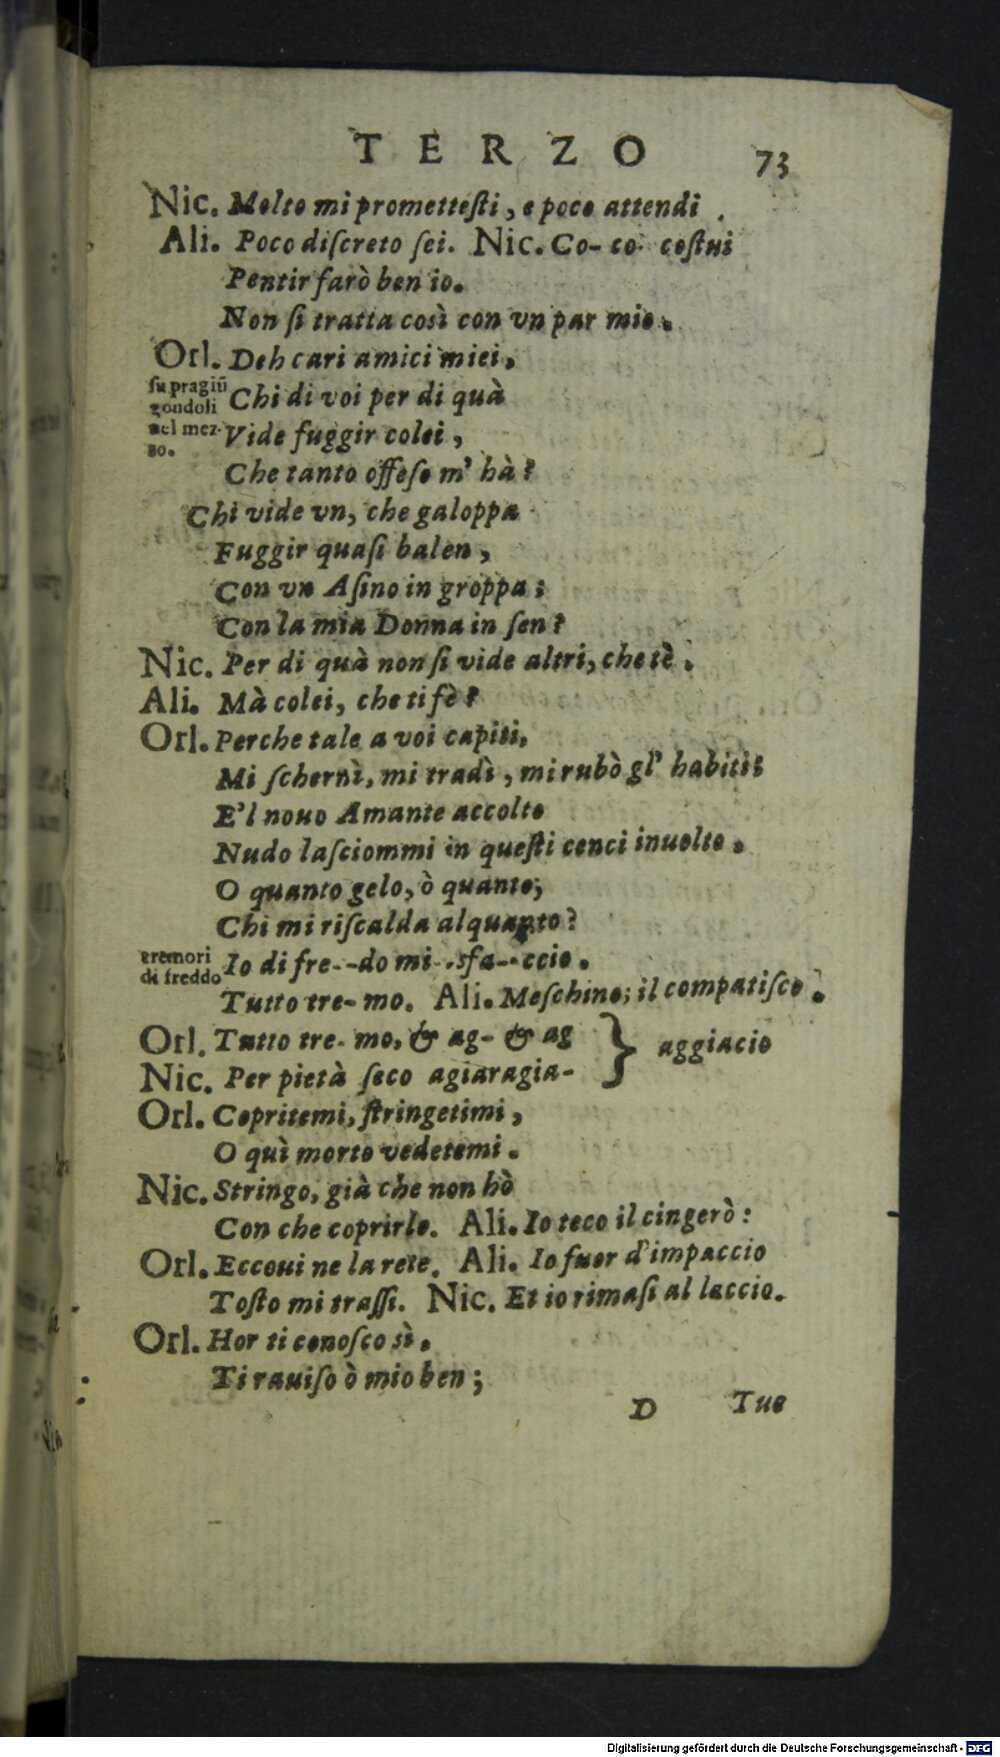 TERZO 73
Nic. Molto mi promettesti, e poco attendi.
Ali. Poco discreto sei. Nic. Co- co- costui
Pentir farò ben io.
Non si tratta così con vn par mio.
Orl. Deh cari amici miei,
supragiũ Chi di voi per di quà
gondoli
nel mez- Vide fuggir colei,
zo.
Che tanto offeso m' hà?
Chi vide vn, che galoppa
Fuggir quasi balen,
Con vn Asino in groppa;
Con la mia Donna in sen?
Nic. Per di quà non si vide altri, che tè.
Ali. Mà colei, che ti fè?
Orl. Perche tale a voi capiti,
Mi schernì, mi tradì, mi rubò gl' habiti:
E'l nouo Amante accolto
Nudo lasciommi in questi cenci inuolto.
O quanto gelo, ò quanto;
Chi mi riscalda alquanto?
tremori Io di fre--do mi--sfa--ccio.
di freddo
Tutto tre- mo. Ali. Meschino; il compatisco.
Orl. Tutto tre- mo, & ag- & ag } aggiacio
Nic. Per pietà seco agiaragia-
Orl. Copritemi, stringetimi,
O quì morto vedetemi.
Nic. Stringo, già che non hò
Con che coprirlo. Ali. Io teco il cingerò:
Orl. Eccoui ne la rete. Ali. Io fuor d'impaccio
Tosto mi trassi. Nic. Et io rimasi al laccio.
Orl. Hor ti conosco sì.
Ti rauiso ò mio ben;
D Tuo
Digitalisierung gefördert durch die Deutsche Forschungsgemeinschaft - DFG